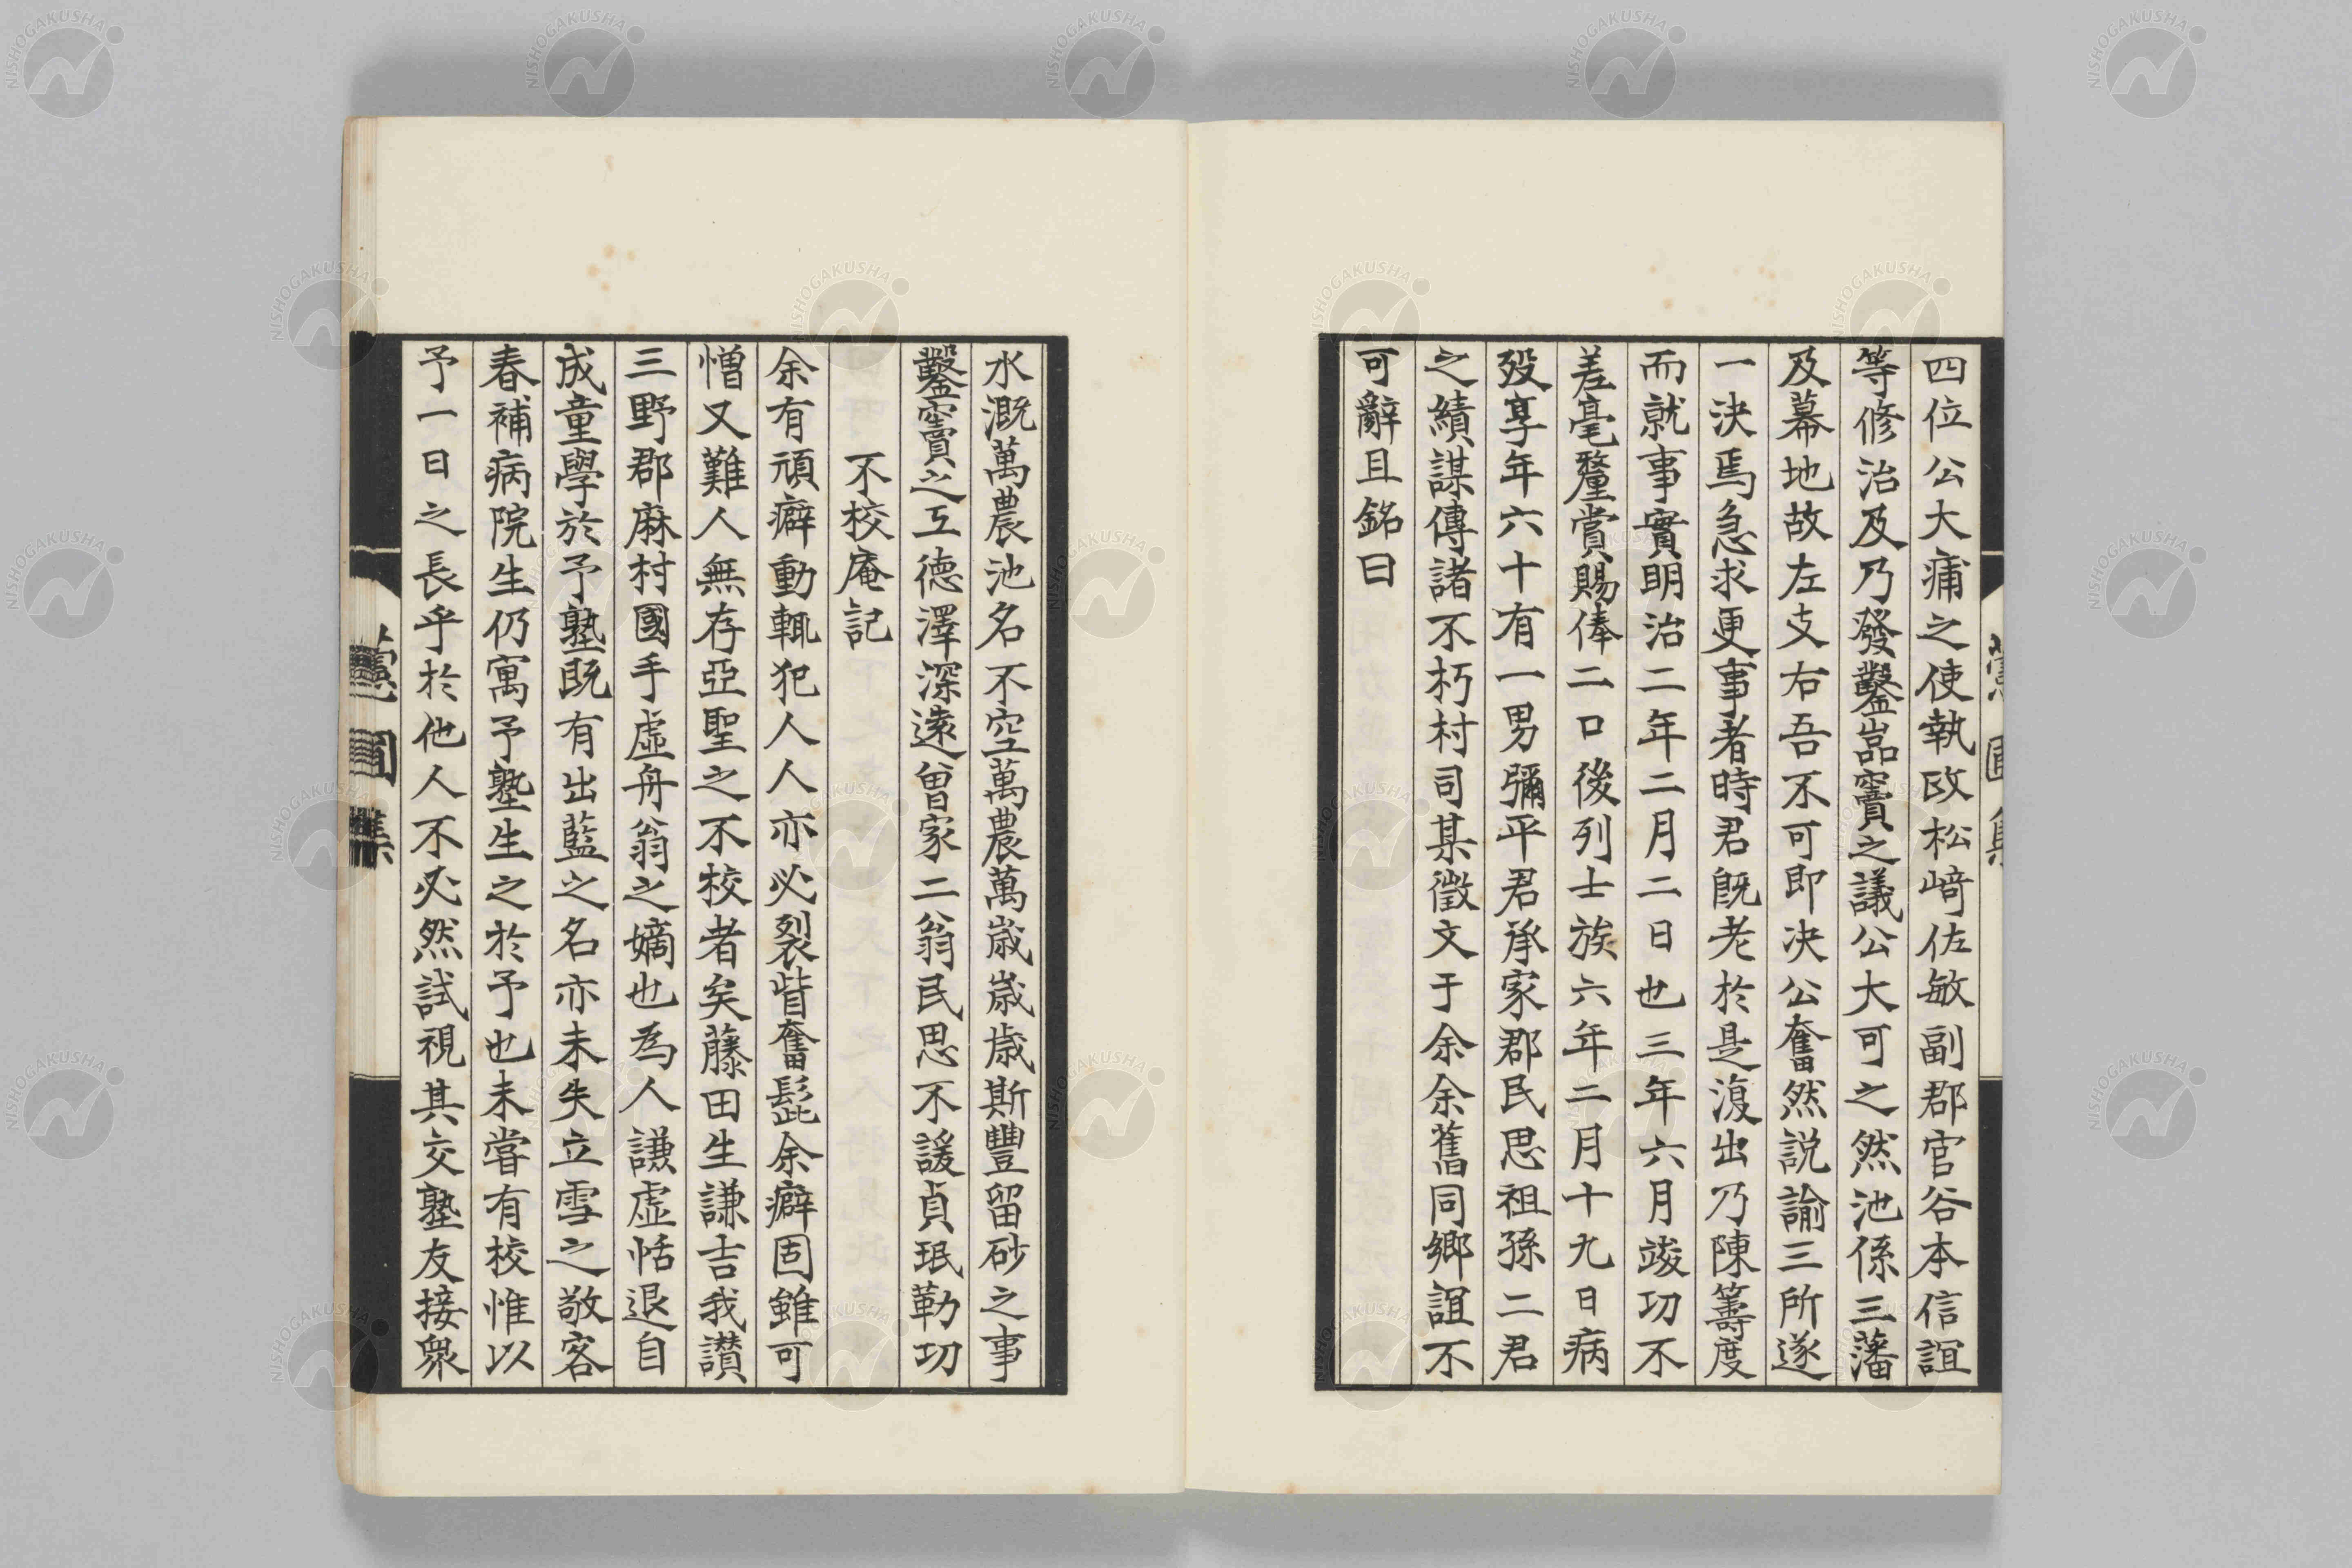 四位公大痡之使執政松﨑佐敏副郡官谷本信誼
等修治及乃發鑿嵓竇之議公大可之然池係三藩
及幕地故左支右吾不可即决公奮然説諭三所遂
一決焉急求更事者時君既老於是復出乃陳籌度
而就事實明治二年二月二日也三年六月竣切不
差毫釐賞賜俸二口後列士族六年二月十九日病
歿享年六十有一男彌平君承家郡民思祖孫二君
之績謀傳諸不朽村司某徵文于余余舊同鄉誼不
可辭且銘曰
水漑萬農池名不空萬農萬歲歲歲斯豐留砂之事
鑿竇之工德澤深遠曾家二翁民思不諼貞珉勒切
不校庵記
余有頑癖動輒犯人人亦必裂眥奮髭余癖固雖可
憎又難人無存亞聖之不校者矣藤田生謙吉我讃
三野郡麻村國手虛舟翁之嫡也為人謙虛恬退自
成童學於予塾既有出藍之名亦未失立雪之敬客
春補病院生仍寓予塾生之於予也未嘗有校惟以
予一日之長乎於他人不必然試視其交塾友接衆